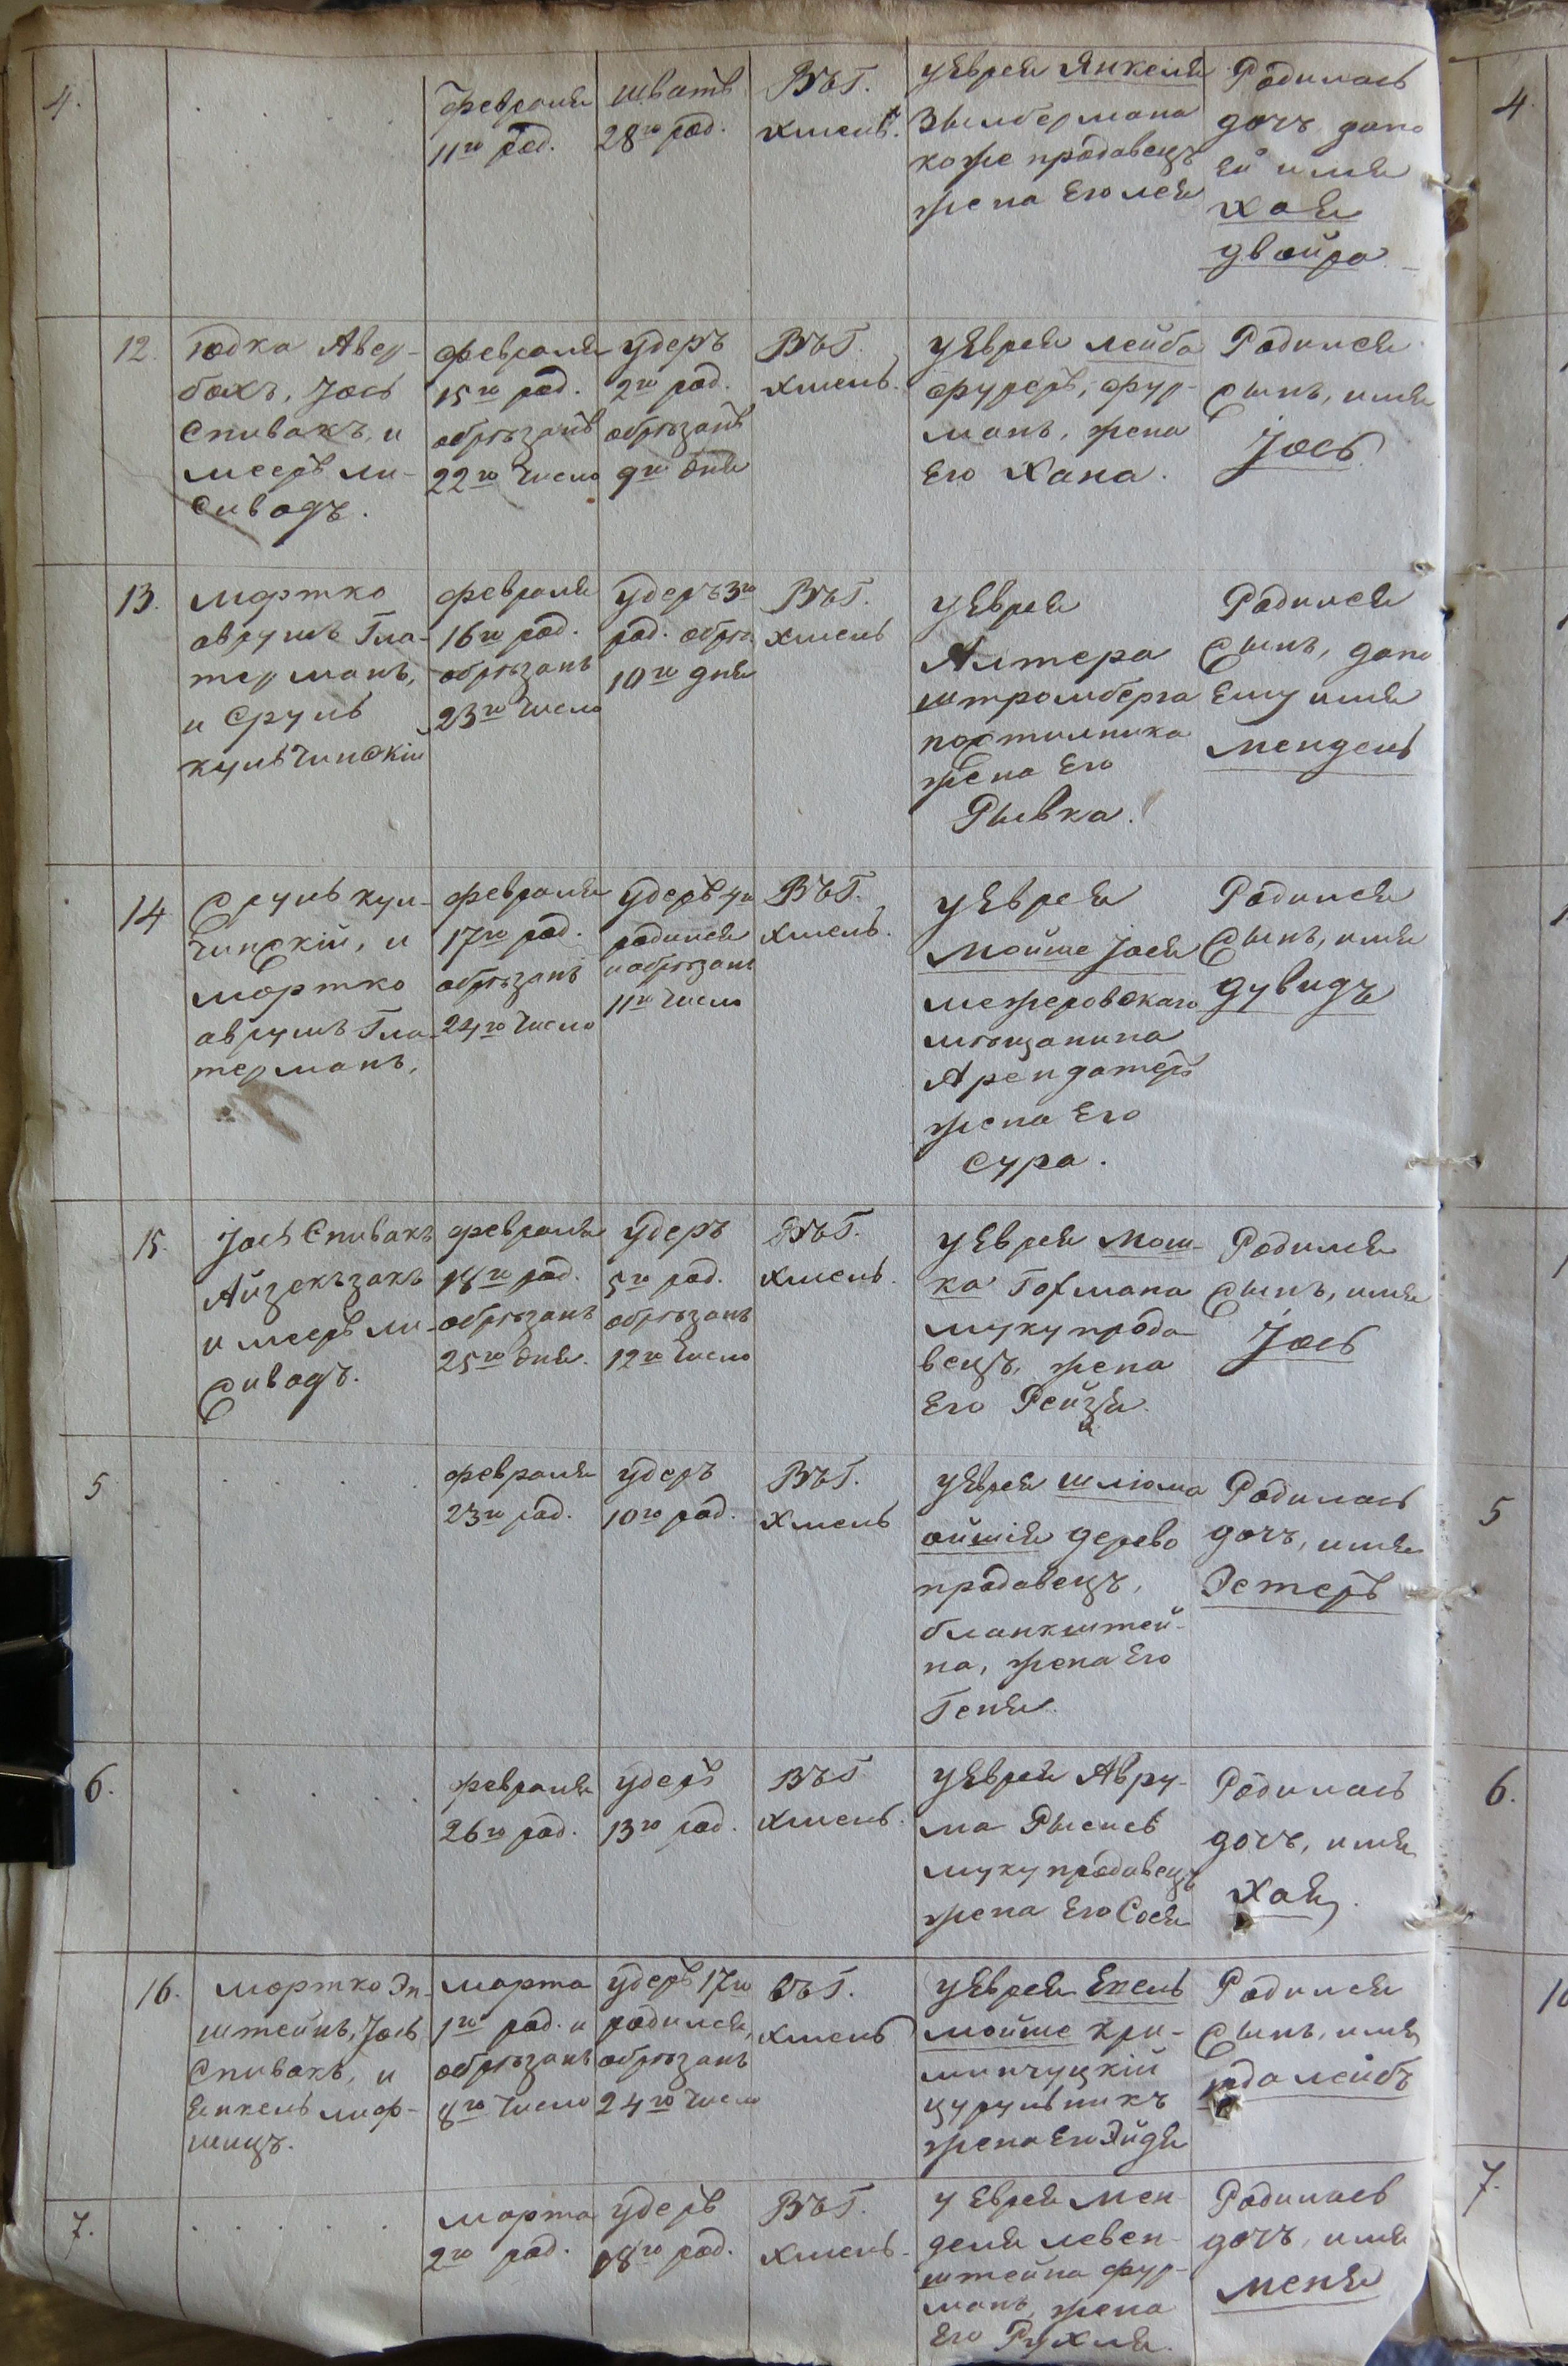 4.
февраля
11го род.
шватъ
28го род.
Въ Г.
Хмель.
у Еврея Янкеля
Зильбермана
коже продавецъ
жена Его Лея
Родилась
дочь дано
ей имя
Хая
Двойра
12.
Юдка Авер-
бахъ, Іось
Спивакъ, и
Мееръ Ли-
Сиводъ.
февраля
15го род.
обрѣзанъ
22го число
Удеръ
2го род.
обрѣзанъ
9го дня
Въ Г.
Хмель.
у Еврея Лейба
фуреръ, фур-
манъ, жена
Его Хана.
Родился
Сынъ, имя
Іось
13.
Мортко
Аврумъ Гла-
терманъ,
и Сруль
Кульчинскій
февраля
16го род.
обрѣзанъ
23го число
Удеръ 3го
род. обрѣ.
10го дня
Въ Г.
Хмель
у Еврея
Алтера
Штромберга
постилника
жена Его
Рывка.
Родился
Сынъ, дано
Ему имя
Мендель
14
Сруль Кул-
чинскій, и
Мортко
Аврумъ Гла-
терманъ,
февраля
17го род.
обрѣзанъ
24го число
Удеръ 4го
родился
и обрѣзанъ
11го число
Въ Г.
Хмель.
у Еврея
Мойше Іося
Межеровскаго
мѣщанина
Арендатеръ
жена Его
Сура.
Родился
Сынъ, имя
Дувидъ
15.
Іось Спивакъ
Айзекъ Закъ
и Мееръ Ли-
Сиводъ.
февраля
18го род.
обрѣзанъ
25го дня.
Удеръ
5го род.
обрѣзанъ
12го число
Въ Г.
Хмель.
у Еврея Мош-
ка Гофмана
муку прода-
вецъ, жена
Его Рейзя
Родился
Сынъ, имя
Іось
5
февраля
23го род.
Удеръ
10го род.
Въ Г.
Хмель
у Еврея Шлюма
Ойшія дерево
продавецъ,
Бланкштей-
на, жена Его
Геня.
Родилась
дочь, имя
Эстеръ
6.
февраля
26го род.
Удеръ
13го род.
Въ Г
Хмель.
у Еврея Авру-
ма
муку продавецъ
жена Его Сося
Родилась
дочь, имя
Хая
16.
Мортко Эп-
штейнъ, Іось
Спивакъ, и
Янкель Лиф-
шицъ.
марта
1го род. и
обрѣзанъ
8го число
Удеръ 17го
родился,
обрѣзанъ
24го число
Въ Г.
Хмель
у Еврея Ехель
Мойше Кри-
минчуцкій
цурульникъ
жена Его Эйдя
Родился
Сынъ, имя
Юда Лейбъ
7.
марта
2го род.
Удеръ
18го род.
Въ Г.
Хмель.
у Еврея Мен-
деля Левен-
штейна фур-
манъ, жена
Его Рухля.
Родилась
дочь, имя
Меня
4
5
6.
7.